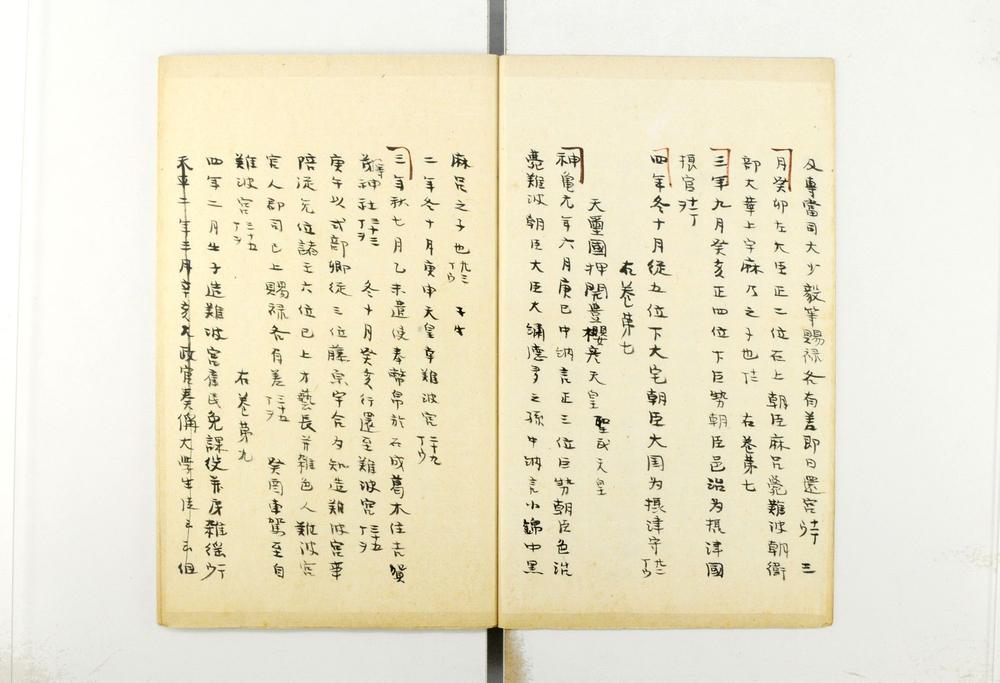 及專當司大少毅等賜禄各有差即日還宮 十一丁ウ 三
月癸卯左大臣正二位石上朝臣麻呂薨難波朝衛
部大華上宇麻乃之子也 右卷第七
三年九月癸亥正四位下巨勢朝臣邑治為摂津國
摂官 十一丁ヲ
四年冬十月從五位下大宅朝臣大国为摂津守 丁ウ
右卷第七
天璽國押開豊櫻彦天皇 聖武天皇
神亀元年六月庚巳中納言正三位巨勢朝臣邑治
薨難波朝臣大臣大繡德多之孫中納言小錦中黒
麻呂之子也 丁ウ
二年冬十月庚申天皇幸難波宮 二十九丁ウ
三年秋七月乙未遣使奉幣帛於石成葛木住吉賀
茂等神社 三十三丁ヲ 冬十月癸亥行還至難波宮 三十五丁ヲ
庚午以式部卿從三位藤原宇合为知造難波宮事
陪従无位諸王六位已上才藝長并雑色人難波宮
官人郡司已上賜禄各有差 三十五丁ヲ 癸酉車駕至自
難波宮 三十五丁ヲ
右卷第九
四年二月壬子造難波宮雇民免課役并房雑徭 丁ウ
天平二年三月辛亥太政官奏偁大學生徒云云但